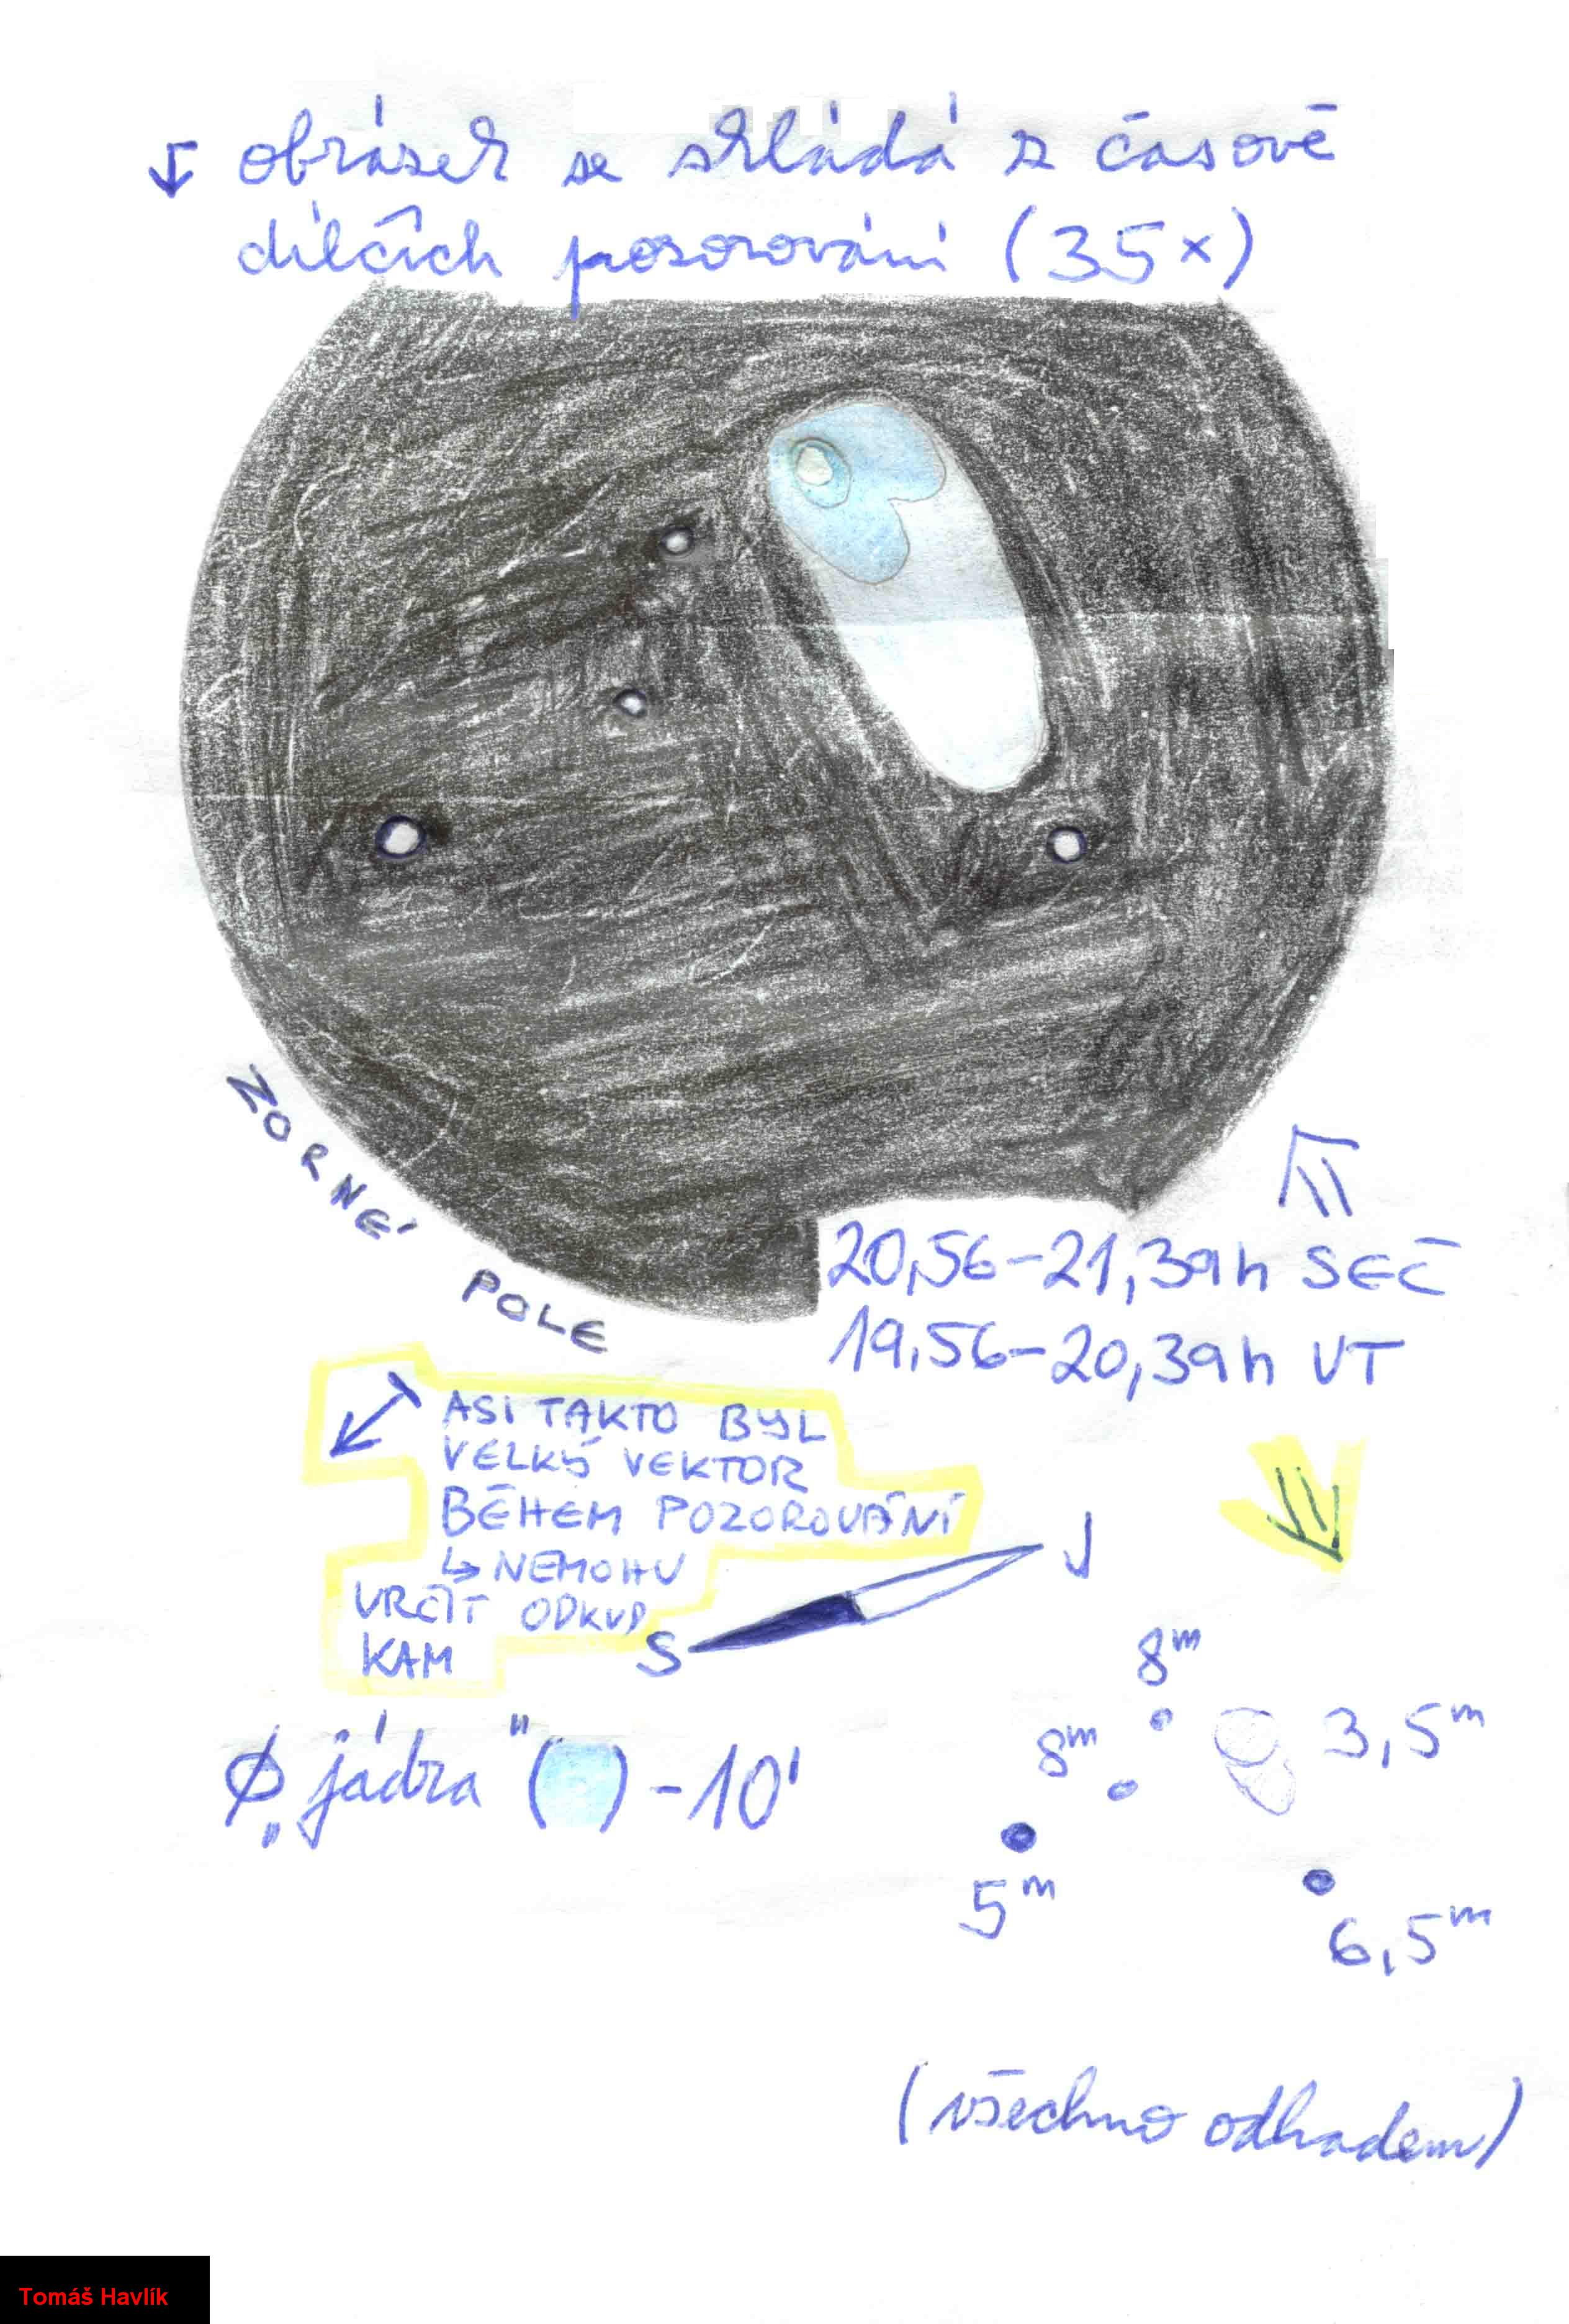 obrázek se skládá z časově
dílčích pozorování (35x)
ZORNÉ POLE
20,56-21,39h SEČ
19,56-20,39h UT
ASI TAKTO BYL
VELKÝ VEKTOR
BĚHEM POZOROVÁNÍ
↳ NEMOHU
URČIT ODKUD
KAM
S
J
Ø „jádra" ( ) - 10'
8m
8m
3,5m
5m
6,5m
(všechno odhadem)
Tomáš Havlík